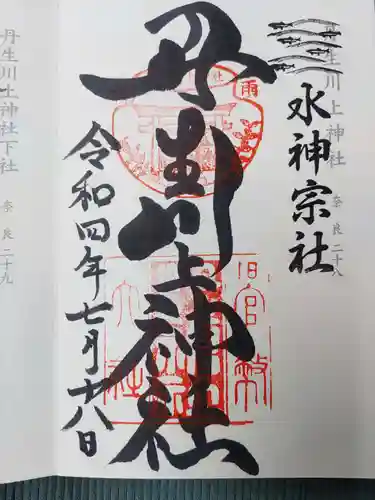 丹生川上神社 奈良二十八
水神宗社
丹生川上神社
雨
社
旧官幣
大社
令和四年七月十八日
丹生川上神社下社 奈良二十九